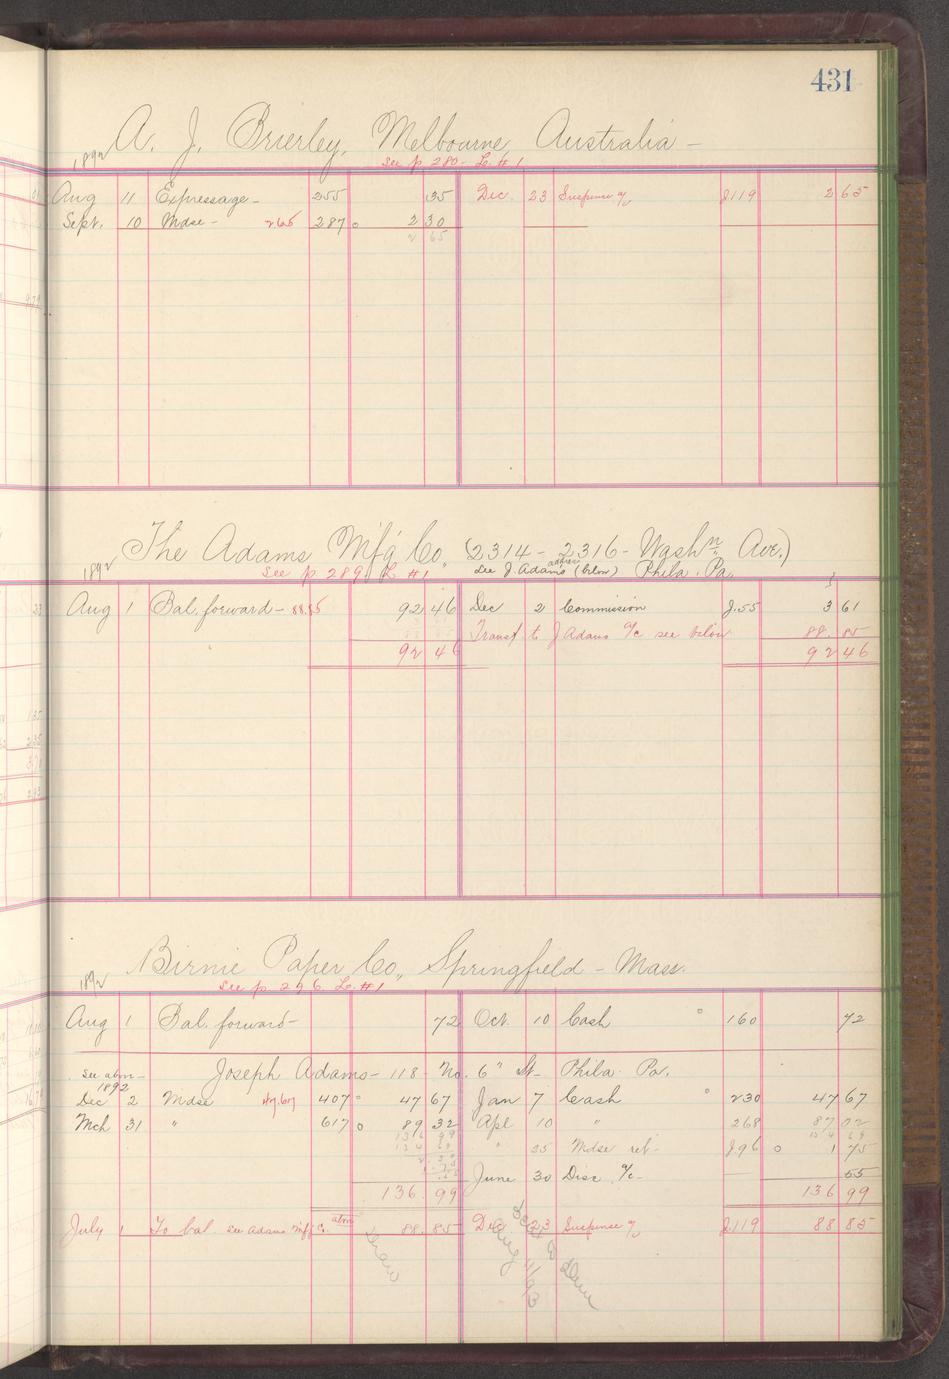 431
A. J. Brierley, Melbourne, Australia -
1892 See p 280 - L. #1
Aug 11 Expressage - 255 35 Dec. 23 Suspense a/c J119 2 65
Sept. 10 Mdse - 265 287 o 2 30
2 65
The Adams M'f'g Co. (2314 - 2316 - Wash'n Ave.)
1892 See p 289. L #1 See J. Adams address (below) Phila. Pa.
Aug 1 Bal. forward - 88.85 92 46 Dec 2 Commission J.55 3 61
Transf to J Adams a/c see below 88. 85
92 46 92 46
Birnie Paper Co., Springfield - Mass.
1892 See p 296. L. #1
Aug 1 Bal. forward - 72 Oct. 10 Cash 160 72
See abov - Joseph Adams - 118 - No. 6" St - Phila. Pa.
1892
Dec 2 Mdse 47.67 407 47 67 Jan 7 Cash 230 47 67
Mch 31 " 617 o 89 32 Apl 10 " 268 87 02
" 25 Mdse ret - J.96 o 1 75
June 30 Disc a/c - 55
136. 99 136 99
July 1 To bal. see Adams Mfg Co. above 88. 85 Dec 23 Suspense a/c J119 88 85
Aug 11/93